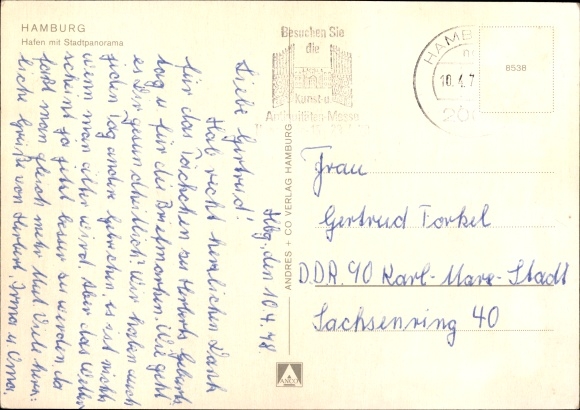 HAMBURG
Hafen mit Stadtpanorama
Hbg, den 10.4.78.
Liebe Gertrud!
Hab recht herzlichen Dank
für das Taschchen zu Herberts Geburts-
tag u. für die Briefmarken. Wie geht
es Dir gesundheitlich? Wir haben auch
jeden Tag andere Gebrechen, es ist nicht
wenn man älter wird. Aber das Wetter
scheint ja jetzt besser zu werden, da
hat man gleich mehr Mut. Viele herz-
liche Grüße von Herbert, Irma u. Oma.
ANDRES + CO VERLAG HAMBURG
ANCO
Besuchen Sie
die
Kunst-u.
Antiquitäten-Messe
HAMB
10.4.7
20
8538
Frau
Gertrud Forkel
DDR. 90 Karl-Marx-Stadt
Sachsenring 40